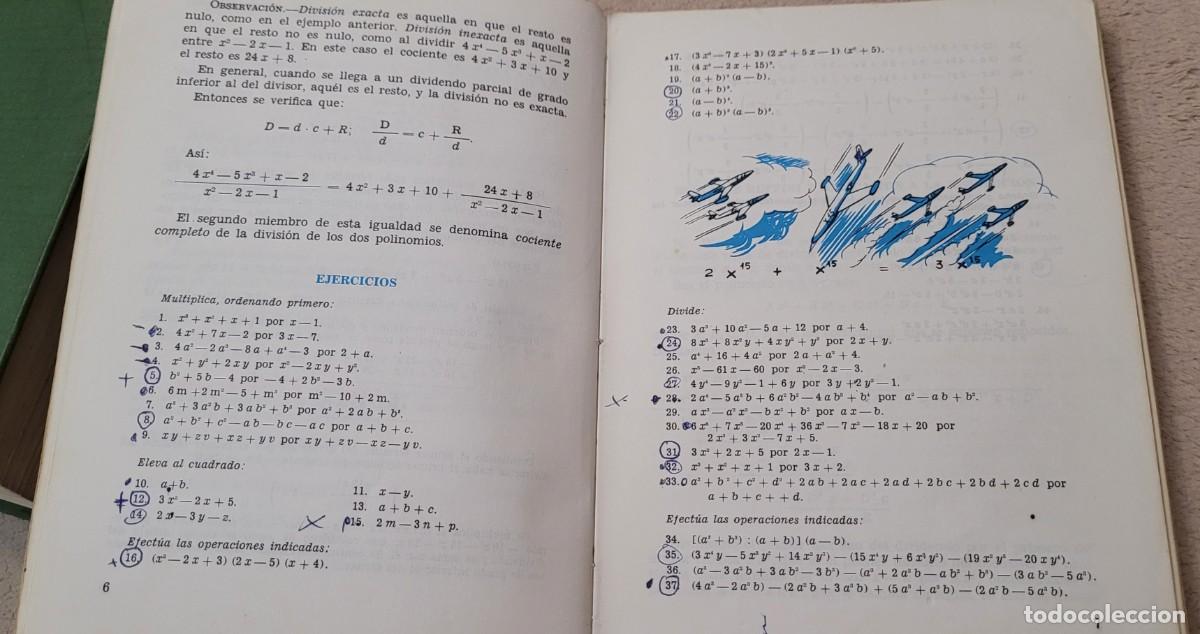 OBSERVACIÓN.—División exacta es aquella en que el resto es
nulo, como en el ejemplo anterior. División inexacta es aquella
en que el resto no es nulo, como al dividir 4 x⁴ — 5 x³ + x — 2
entre x² — 2 x — 1. En este caso el cociente es 4 x² + 3 x + 10 y
el resto es 24 x + 8.
En general, cuando se llega a un dividendo parcial de grado
inferior al del divisor, aquél es el resto, y la división no es exacta.
Entonces se verifica que:
D = d · c + R; D/d = c + R/d.
Así:
4 x⁴ — 5 x³ + x — 2 / x² — 2 x — 1 = 4 x² + 3 x + 10 + 24 x + 8 / x² — 2 x — 1
El segundo miembro de esta igualdad se denomina cociente
completo de la división de los dos polinomios.
EJERCICIOS
Multiplica, ordenando primero:
1. x³ + x² + x + 1 por x — 1.
2. 4 x² + 7 x — 2 por 3 x — 7.
3. 4 a² — 2 a³ — 8 a + a⁴ — 3 por 2 + a.
4. x² + y² + 2 x y por x² — 2 x y + y².
5. b² + 5 b — 4 por — 4 + 2 b² — 3 b.
6. 6 m + 2 m² — 5 + m³ por m² — 10 + 2 m.
7. a³ + 3 a² b + 3 a b² + b³ por a² + 2 a b + b².
8. a² + b² + c² — a b — b c — a c por a + b + c.
9. x y + z v + x z + y v por x y + z v — x z — y v.
Eleva al cuadrado:
10. a + b.
11. x — y.
12. 3 x² — 2 x + 5.
13. a + b + c.
14. 2 x — 3 y — z.
15. 2 m — 3 n + p.
Efectúa las operaciones indicadas:
16. (x² — 2 x + 3) (2 x — 5) (x + 4).
6
18. (4 x² — 2 x + 15)².
20
21.
22
2 x¹⁵ + x¹⁵ = 3 x¹⁵
Divide:
23. 3 a³ + 10 a² — 5 a + 12 por a + 4.
24. 8 x³ + 8 x² y + 4 x y² + y³ por 2 x + y.
25. a⁴ + 16 + 4 a² por 2 a + a² + 4.
26. x⁵ — 61 x — 60 por x² — 2 x — 3.
27. 4 y⁴ — 9 y² — 1 + 6 y por 3 y + 2 y² — 1.
28. 2 a⁴ — 5 a³ b + 6 a² b² — 4 a b³ + b⁴ por a² — a b + b².
29. a x³ — a² x² — b x² + b² por a x — b.
30. 6 x⁶ + 7 x⁵ — 20 x⁴ + 36 x³ — 7 x² — 18 x + 20 por
2 x³ + 3 x² — 7 x + 5.
31 3 x² + 2 x + 5 por 2 x — 1.
32. x³ + x² + x + 1 por 3 x + 2.
33. a² + b² + c² + d² + 2 a b + 2 a c + 2 a d + 2 b c + 2 b d + 2 c d por
a + b + c + + d.
Efectúa las operaciones indicadas:
34. [(a³ + b³) : (a + b)] (a — b).